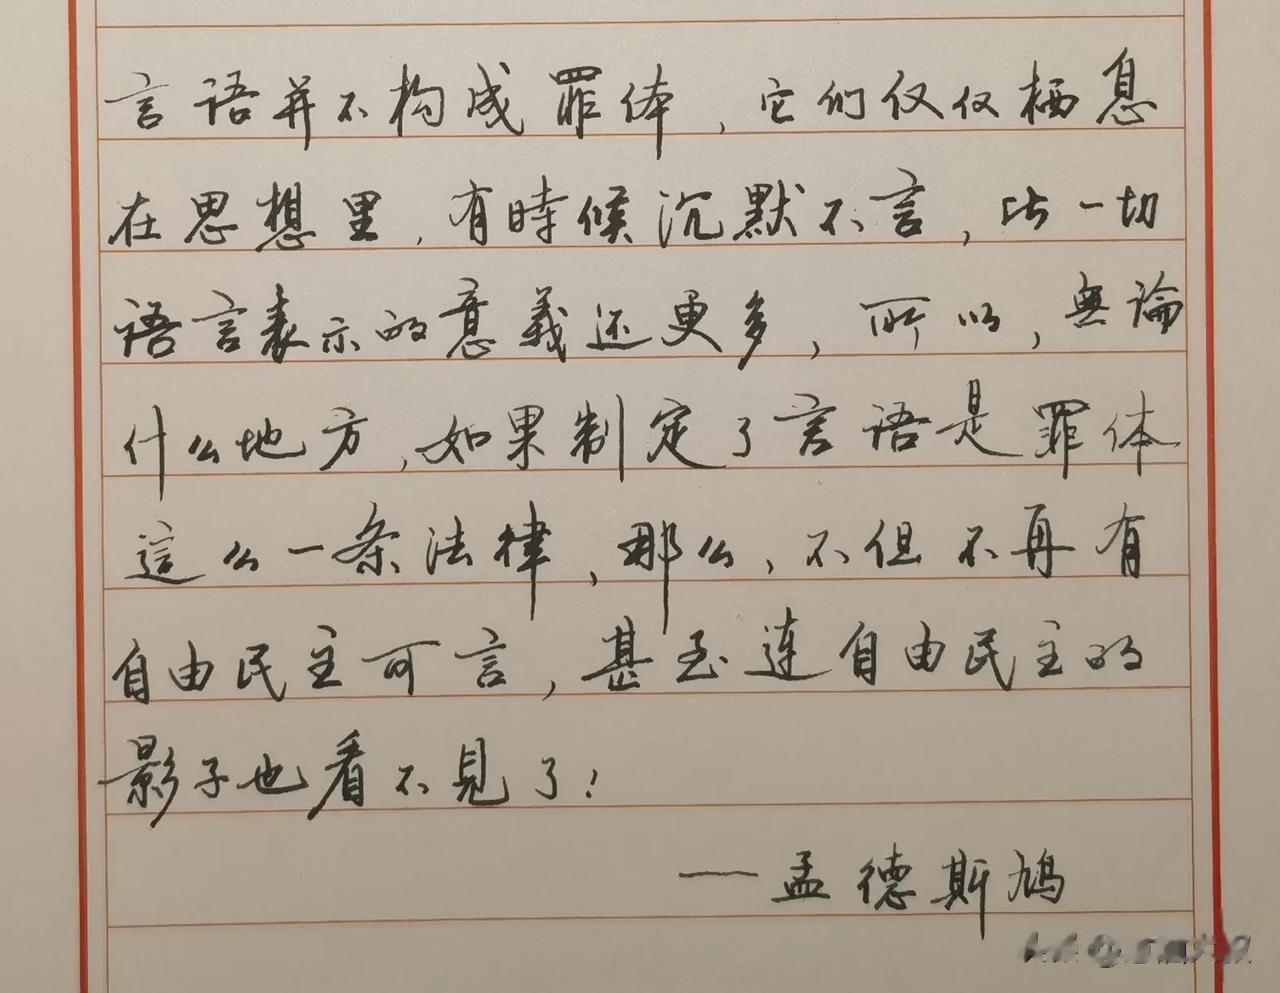 言语并不构成罪体，它们仅仅栖息
在思想里，有時候沉默不言，比一切
语言表示的意義还更多，所以，無論
什么地方，如果制定了言语是罪体
這么一条法律，那么，不但不再有
自由民主可言，甚至连自由民主的
影子也看不見了！
——孟德斯鸠